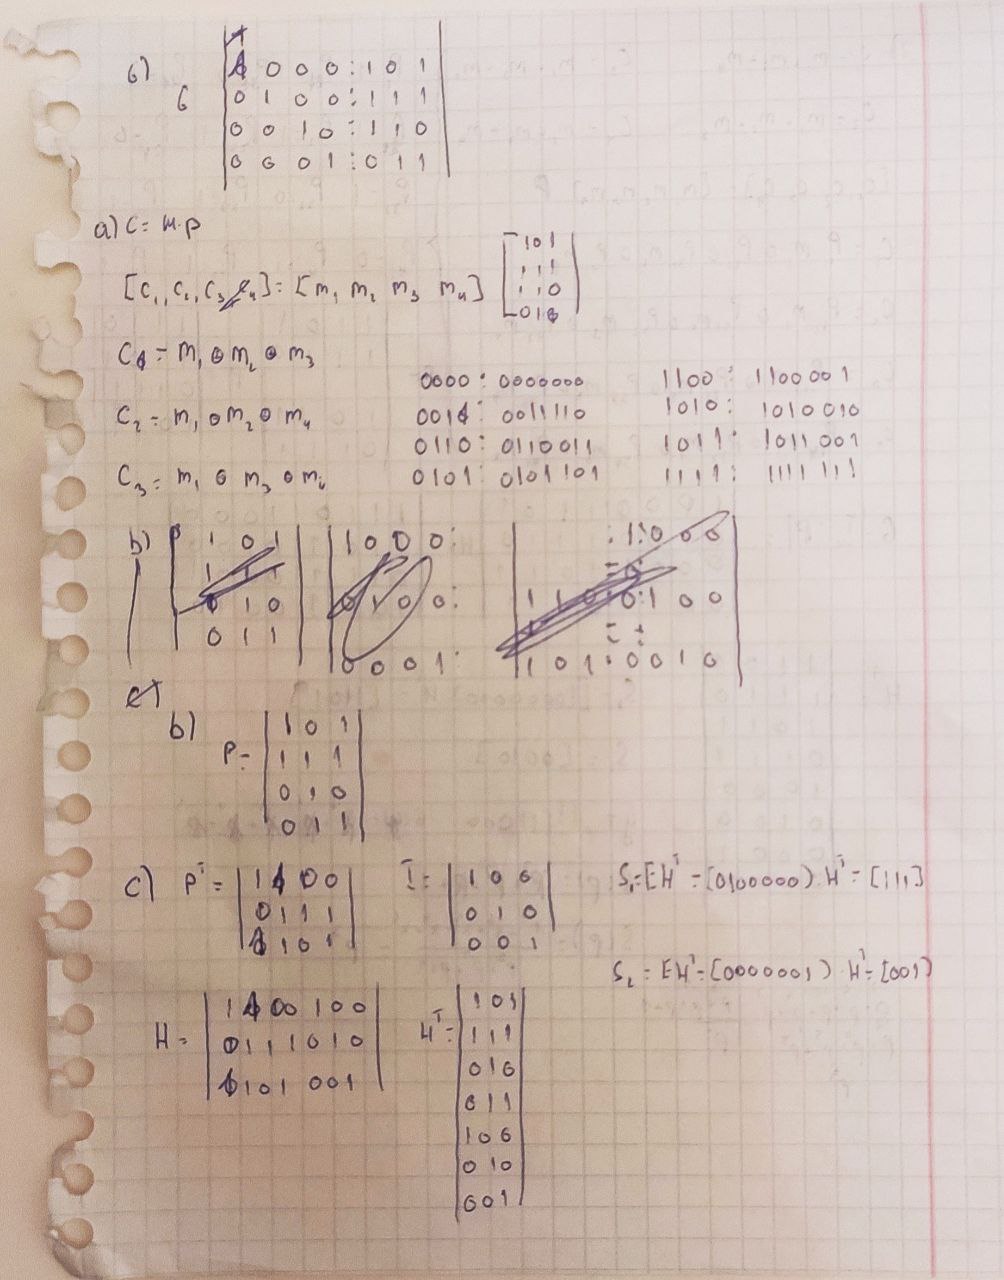 6)
G
1 0 0 0 : 1 0 1
0 1 0 0 : 1 1 1
0 0 1 0 : 1 1 0
0 0 0 1 : 0 1 1
a) C = m·p
[C₁, C₂, C₃] = [m₁ m₂ m₃ m₄]
1 0 1
1 1 1
1 1 0
0 1
C₁ = m₁ ⊕ m₂ ⊕ m₃
C₂ = m₁ ⊕ m₂ ⊕ m₄
C₃ = m₁ ⊕ m₃ ⊕
0000 : 0000000 1100 : 1100001
001 : 0011110 1010 : 1010010
0110 : 0110011 1011 : 1011001
0101 : 0101101 1111 : 1111111
b)
1 0 1 1 0 0 0 : 1 : 0 0 0
0 1 0 0 1 0 0 : 1 1 0 : 0 : 1 0 0
0 1 1 0 0 0 1 : 1 0 1 : 0 0 1 0
b)
P =
1 0 1
1 1 1
0 1 0
0 1 1
c) Pᵀ =
1 1 0 0
0 1 1 1
1 1 0 1
I =
1 0 0
0 1 0
0 0 1
S₁ = EHᵀ = [0100000) · Hᵀ = [111]
S₂ = EHᵀ = [0000001) · Hᵀ = [001)
H =
1 1 0 0 1 0 0
0 1 1 1 0 1 0
1 1 0 1 0 0 1
Hᵀ =
1 0 1
1 1 1
0 1 0
0 1 1
1 0 0
0 1 0
0 0 1